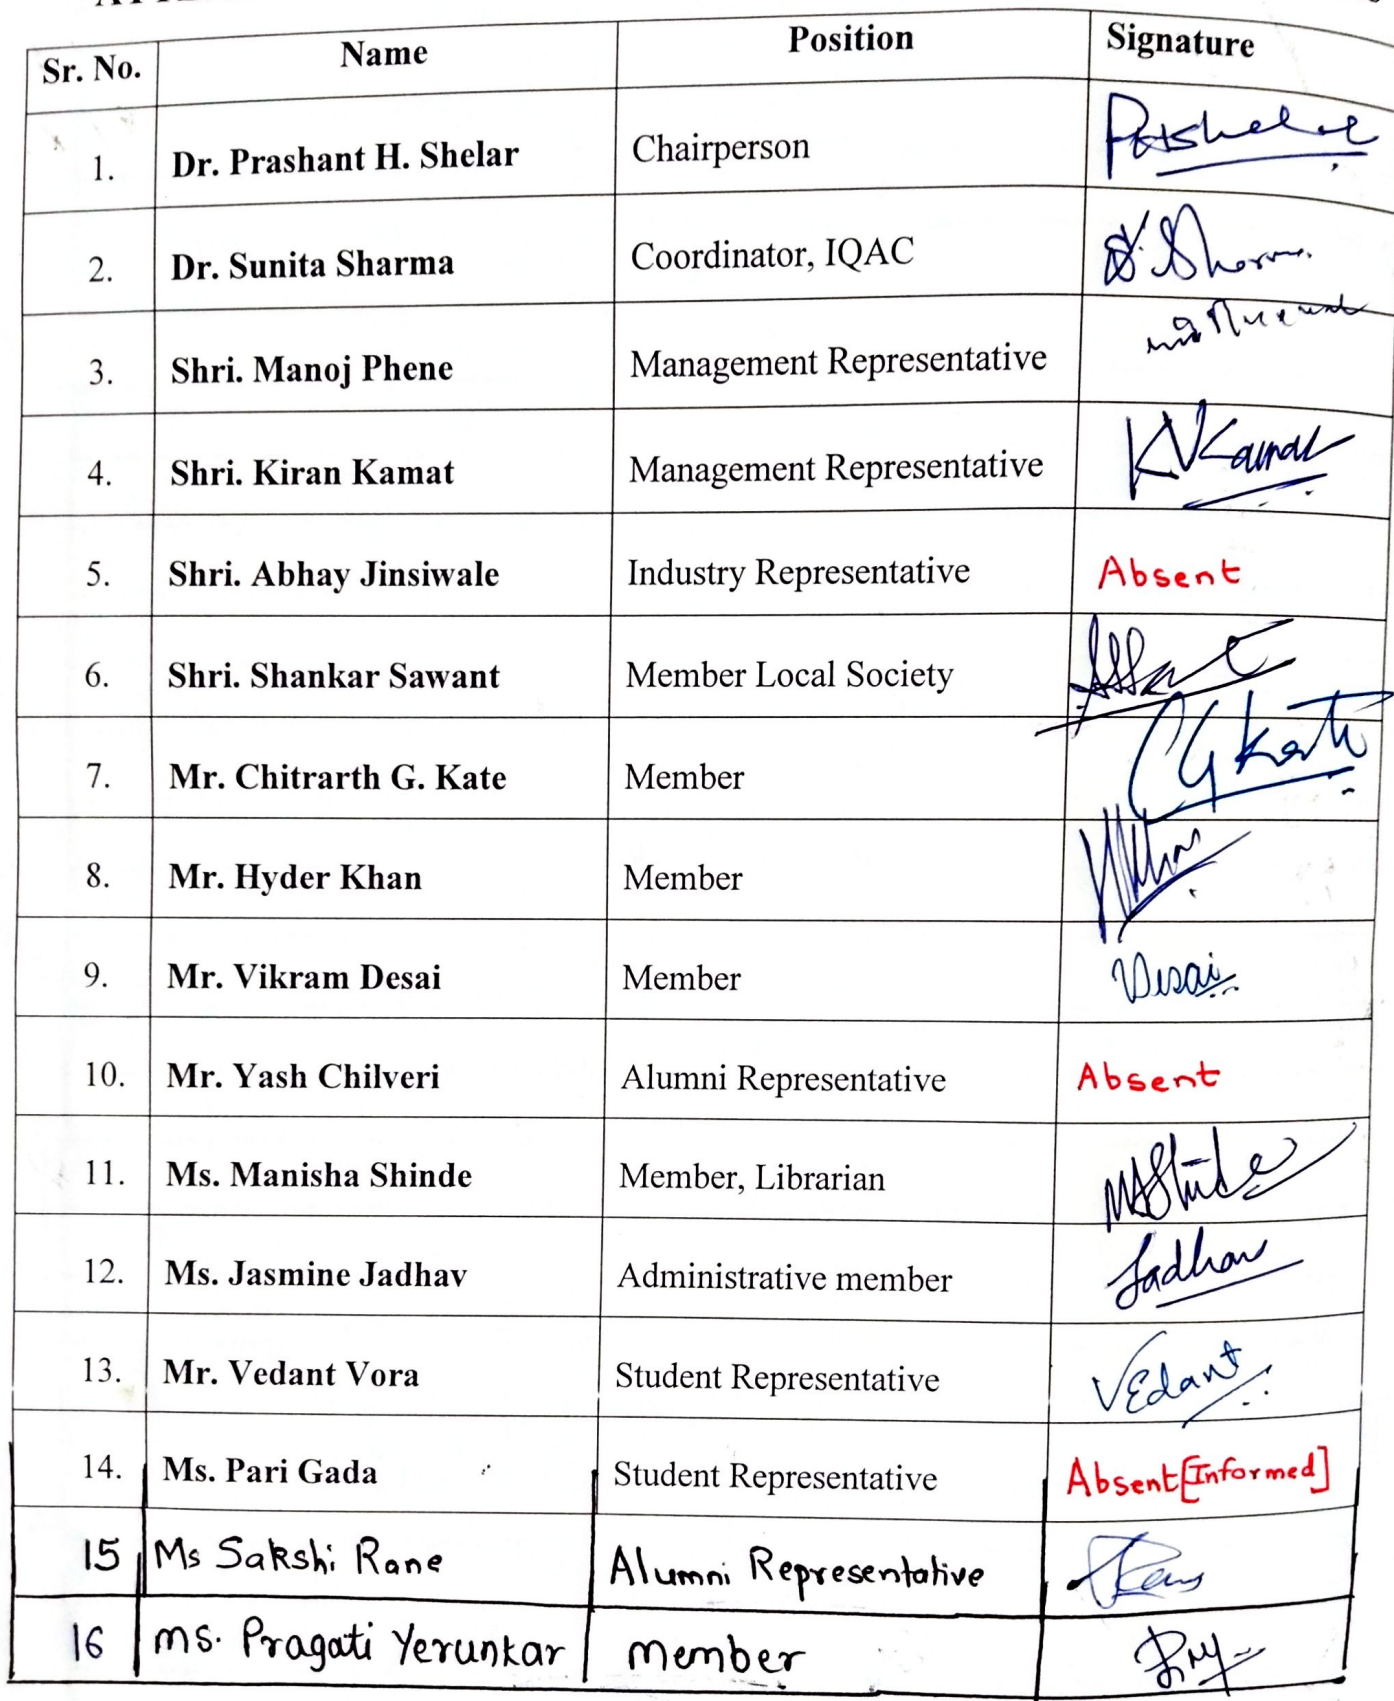 Sr. No. Name Position Signature
1. Dr. Prashant H. Shelar Chairperson
2. Dr. Sunita Sharma Coordinator, IQAC S. Sharma
3. Shri. Manoj Phene Management Representative
4. Shri. Kiran Kamat Management Representative KVKamat
5. Shri. Abhay Jinsiwale Industry Representative Absent
6. Shri. Shankar Sawant Member Local Society
7. Mr. Chitrarth G. Kate Member CGKate
8. Mr. Hyder Khan Member
9. Mr. Vikram Desai Member VDesai
10. Mr. Yash Chilveri Alumni Representative Absent
11. Ms. Manisha Shinde Member, Librarian
12. Ms. Jasmine Jadhav Administrative member Jadhav
13. Mr. Vedant Vora Student Representative Vedant
14. Ms. Pari Gada Student Representative Absent [Informed]
15 Ms Sakshi Rane Alumni Representative
16 Ms. Pragati Yerunkar Member